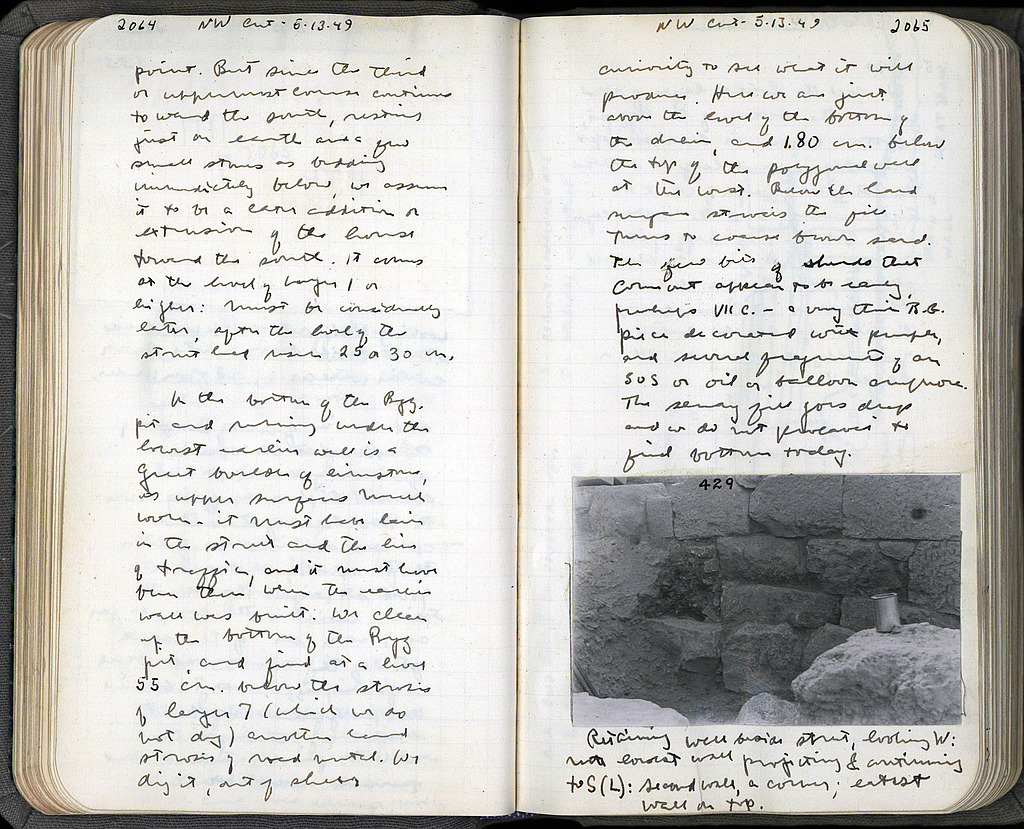 2064 NW Cut - 5.13.49
point. But since the third
or uppermost course continues
toward the south, resting
just on earth and a few
small stones as bedding
immediately below, we assume
it to be a later addition or
extension of the house
toward the south. It comes
at the level of layer 1 or
higher: must be considerably
later, after the level of the
street had risen 25 or 30 cm.
In the bottom of the Byz.
pit and running under the
lowest earlier wall is a
great boulder of limestone,
its upper surface much
worn - it must have lain
in the street and the line
of traffic, and it must have
been there when the earlier
wall was built. We clean
up the bottom of the Byz
pit, and find at a level
55 cm. below the strosis
of layer 7 (which we do
not dig) another hard
strosis of road metal. We
dig it, out of sheer
NW Cut - 5.13.49 2065
curiosity to see what it will
produce. Here we are just
above the level of the bottom of
the drain, and 1.80 cm. below
the top of the polygonal wall
at the west. Below the hard
surface strosis the fill
turns to coarse brown sand.
The few bits of sherds that
come out appear to be early,
perhaps VII C. - a very thin B.G.
piece decorated with purple,
and several fragments of an
SOS or oil or balloon amphora.
The sandy fill goes deep
and we do not proceed to
find bottom today.
429
Retaining wall beside street, looking W:
note lowest wall projecting & continuing
to S (L): second wall, a corner; latest
wall on top.